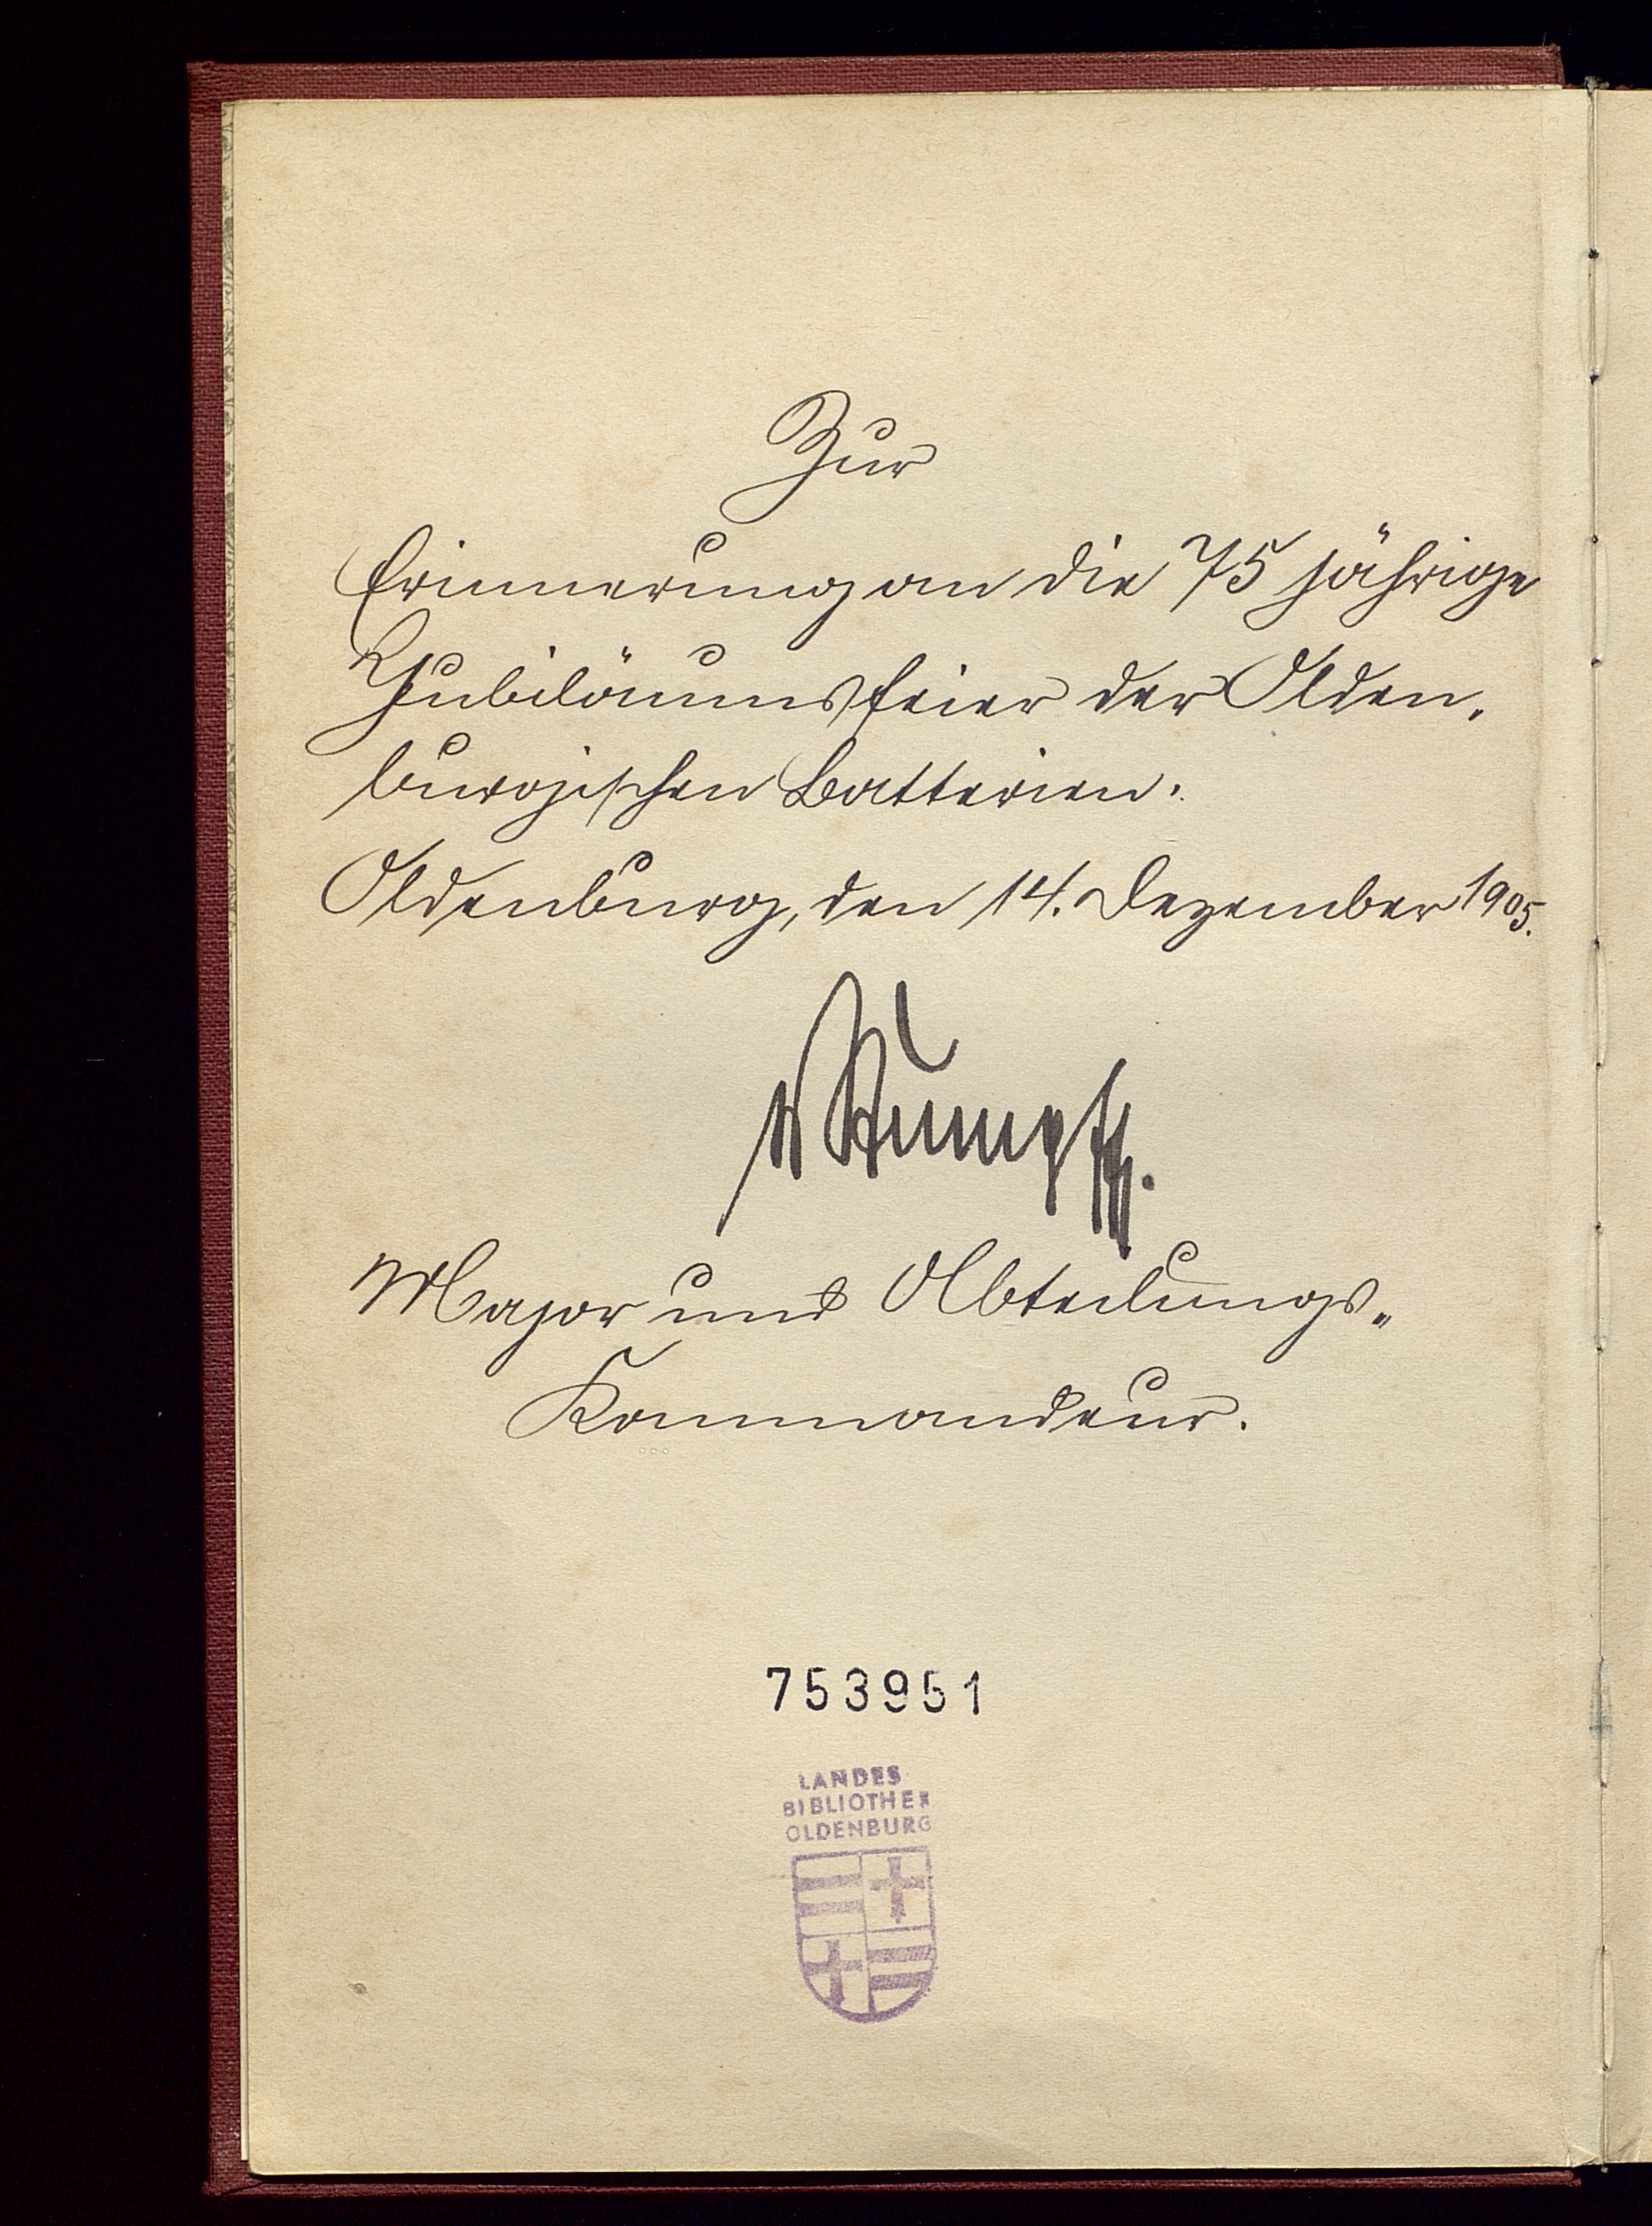 Zur
Erinnerung an die 75 jährige
Jubiläumsfeier der Olden„
burgischen Batterien.
Oldenburg, den 14. Dezember 1905.
Major und Abteilungs„
Kommandeur.
753951
LANDES
BIBLIOTHEK
OLDENBURG